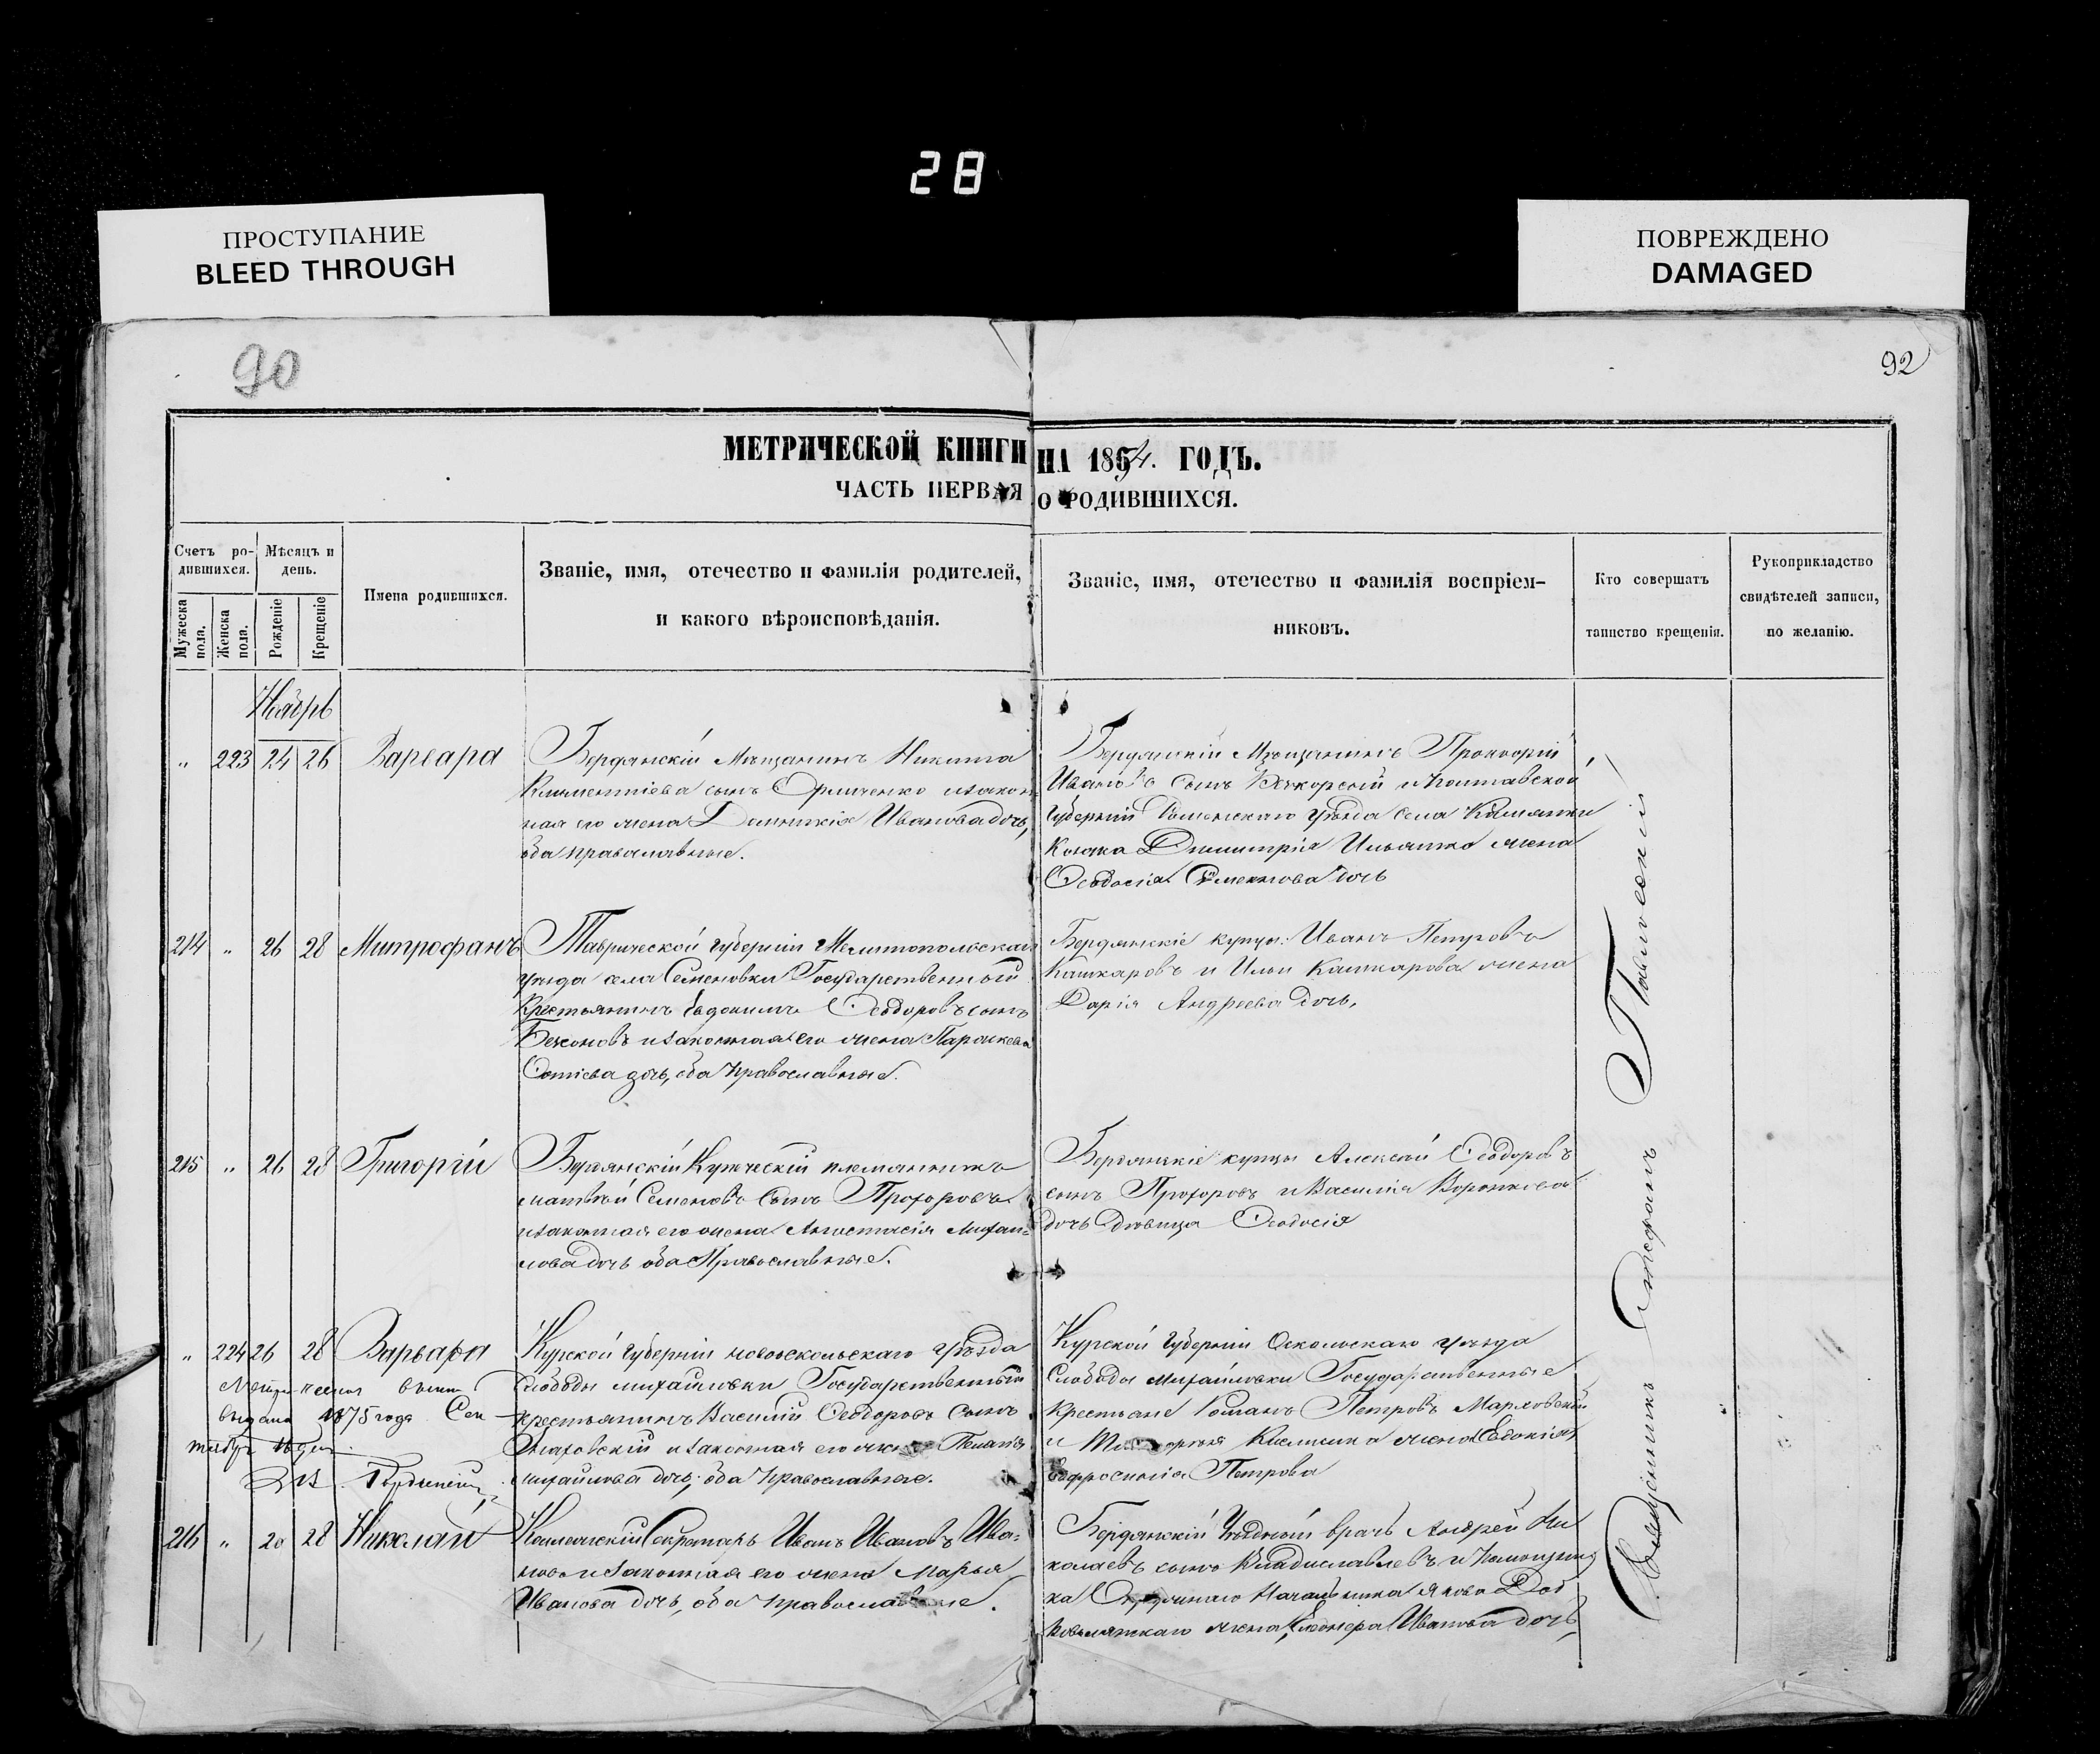 28
ПРОСТУПАНИЕ
BLEED THROUGH
ПОВРЕЖДЕНО
DAMAGED
90
92
МЕТРИЧЕСКОЙ КНИГИ НА 1854. ГОДЪ.
ЧАСТЬ ПЕРВАЯ О РОДИВШИХСЯ.
Счетъ ро-
дившихся.
Мужеска пола.
Женска пола.
Мѣсяцъ и
день.
Рожденіе
Крещеніе
Имена родившихся.
Званіе, имя, отечество и фамилія родителей,
и какого вѣроисповѣданія.
Званіе, имя, отечество и фамилія воспріем-
никовъ.
Кто совершатъ
таинство крещенія.
Рукоприкладство
свидѣтелей записи,
по желанію.
Ноябрь
" 223 24 26 Варвара
Бердянскій Мѣщанинъ Никита
Климентіевъ сынъ и закон
ная его жена Ивановадочь,
оба православные.
Бердянскій Мѣщанинъ Прокопій
Ивановъ сынъ и Полтавской
Губерніи Роменскаго уѣзда села
Козака Димитрія Ильяшко жена
Ѳеодосія Семенова дочь
214 " 26 28 Митрофанъ
Таврической губерніи Мелитопольскаго
уѣзда села Семеновки Государственный
Крестьянинъ Евдокимъ Ѳеодоровъ сынъ
и законная его жена Параскева
Фотіева дочь, оба православные.
Бердянскіе купцы: Иванъ Петровъ
Кашкаровъ и Ильи Кашкарова жена
Дарія Андреева дочь.
215 " 26 28 Григорій
Бердянскій Купеческій племянникъ
матвѣй Семеновъ сынъ Прохоровъ
и законная его жена Анастасія Михаи-
лова дочь оба Православные.
Бердянскіе купцы Алексѣй Ѳеодоровъ
сынъ Прохоровъ и Василія Воронкова
дочь девица Ѳеодосія
" 224 26 28 Варвара
выдана 1875 года Сен
тября
Курской губерніи новооскольскаго уѣзда
Слободы михайловки Государственный
крестьянинъ Василій Ѳеодоровъ сынъ
и законная его жена Пелагія
михайлова дочь, оба православные.
Курской губерніи Оскольскаго уѣзда
Слободы Михайловки Государственные
крестьане Романъ Петровъ
и жена Евдокія
Евфросинія Петрова
216 " 20 28 Николай
Коллежскій Секретарь Иванъ Ивановъ Ива-
новъ и законная его жена Марья
Иванова дочь, оба православные.
Бердянскій Уѣздный врачъ Андрей Ни
колаевъ сынъ Владиславлевъ и Помощни
ка Начальника Якова Доб
жена, Елеонора Иванова дочь,
Священникъ Стефанъ Павловскій